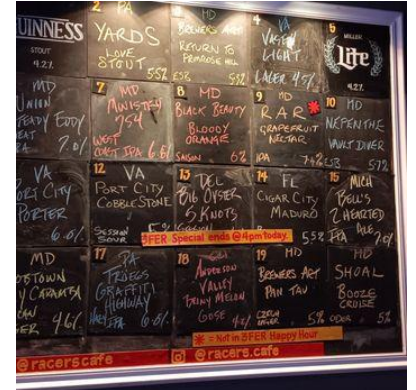 GUINNESS
STOUT
4.2%
2 PA
YARDS
LOVE
STOUT 5.5%
MD
BREWERS ART
RETURN TO
PRIMROSE HILL
ESB 5%
4 VA
LIGHT
LAGER 4.5%
5 MILLER
Lite
4.2%
MD
UNION
EADY EDDY
7.0%
7 MD
MINISTRY
254
WEST
COAST IPA 6.6%
8 MD
BLACK BEAUTY
BLOODY
ORANGE
SAISON 6%
9 MD
RAR *
GRAPEFRUIT
NECTAR
IPA 7.4%
10 MD
NEPENTHE
VAULT DIVER
ESB 5.7%
VA
PORT CITY
PORTER
6.0%
12 VA
PORT CITY
COBBLESTONE
SESSION
SOUR 5%
13 DEL
BIG OYSTER
5 KNOTS
14 FL
CIGAR CITY
MADURO
5.5%
15 MICH
BELL'S
2 HEARTED
ALE
IPA 7.0%
3FER Special ends @ 4pm today.
MD
4.6%
17 PA
TROEGS
GRAFFITI
HIGHWAY
IPA 6.0%
18
ANDERSON
VALLEY
BRINY MELON
GOSE 4.2%
19 MD
BREWERS ART
PAN TAU
CZECH
LAGER 5%
MD
SHOAL
BOOZE
CRUISE
5%
* = Not in 3FER Happy Hour
@racerscafe
@racers.cafe